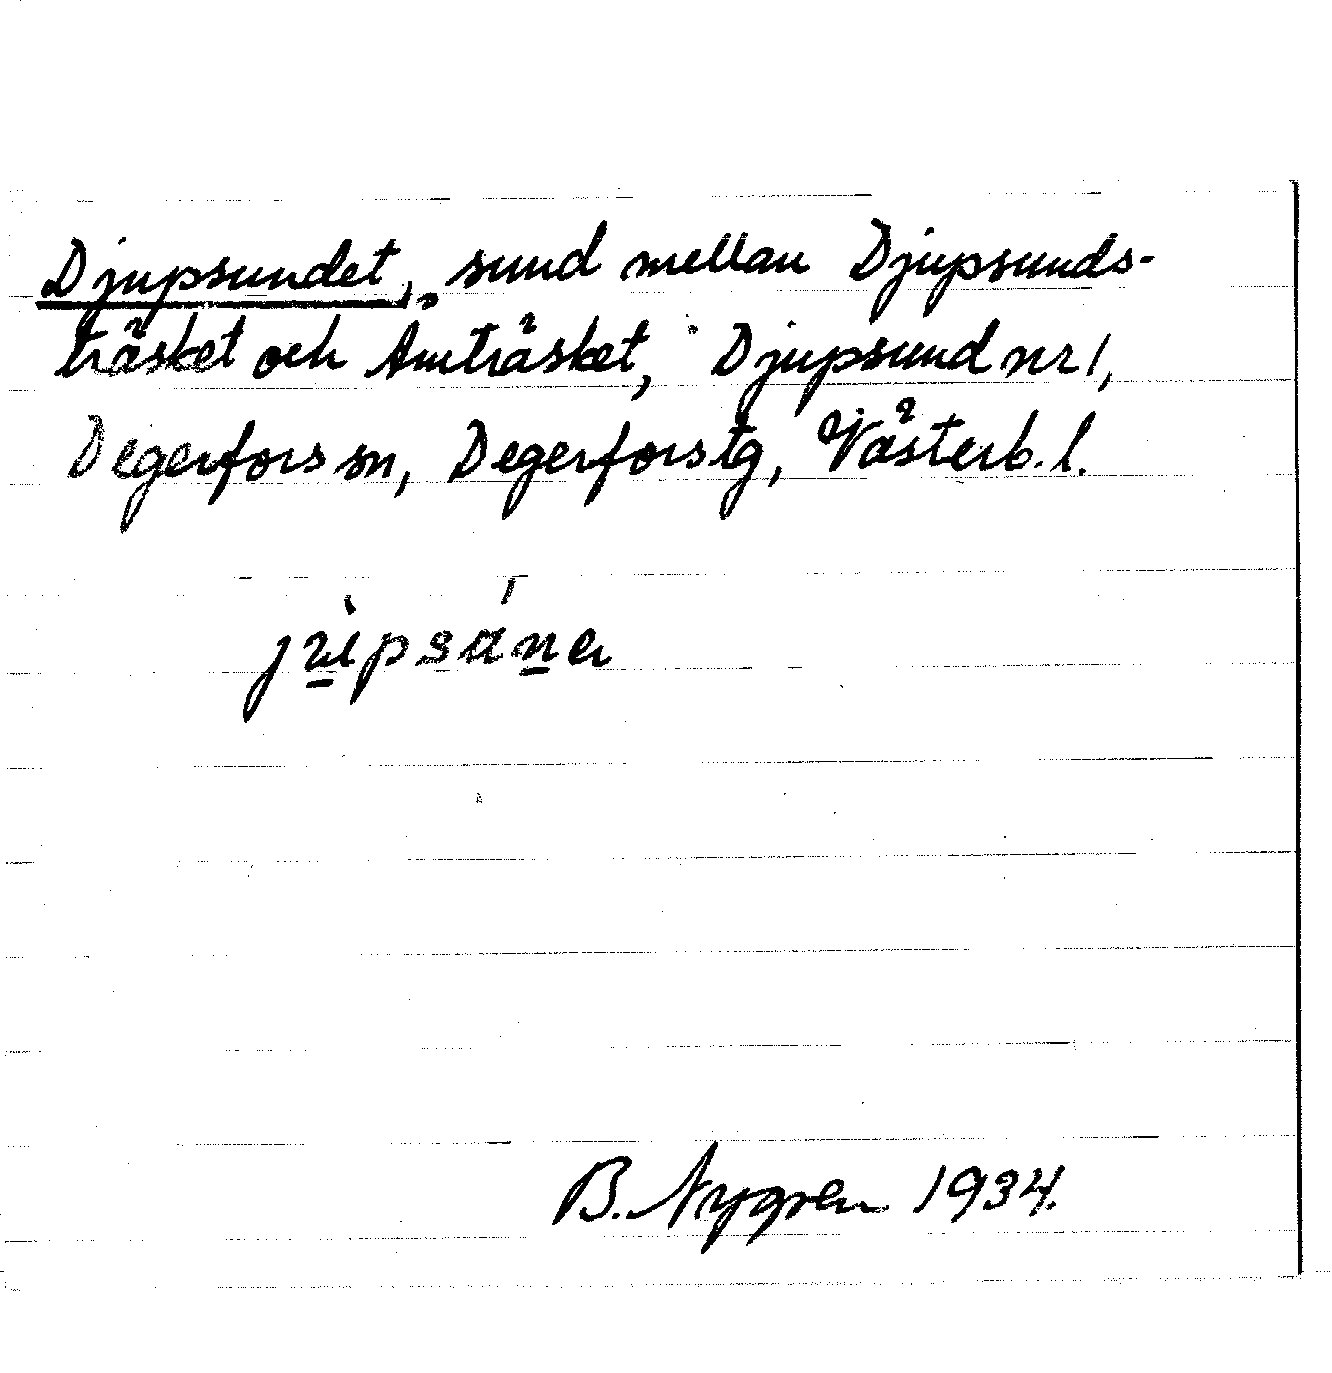 Djupsundet, sund mellan Djupsunds-
träsket och Amträsket, Djupsund nr 1,
Degerfors sn, Degerfors tg, Västerb. l.
B. Nygren 1934.